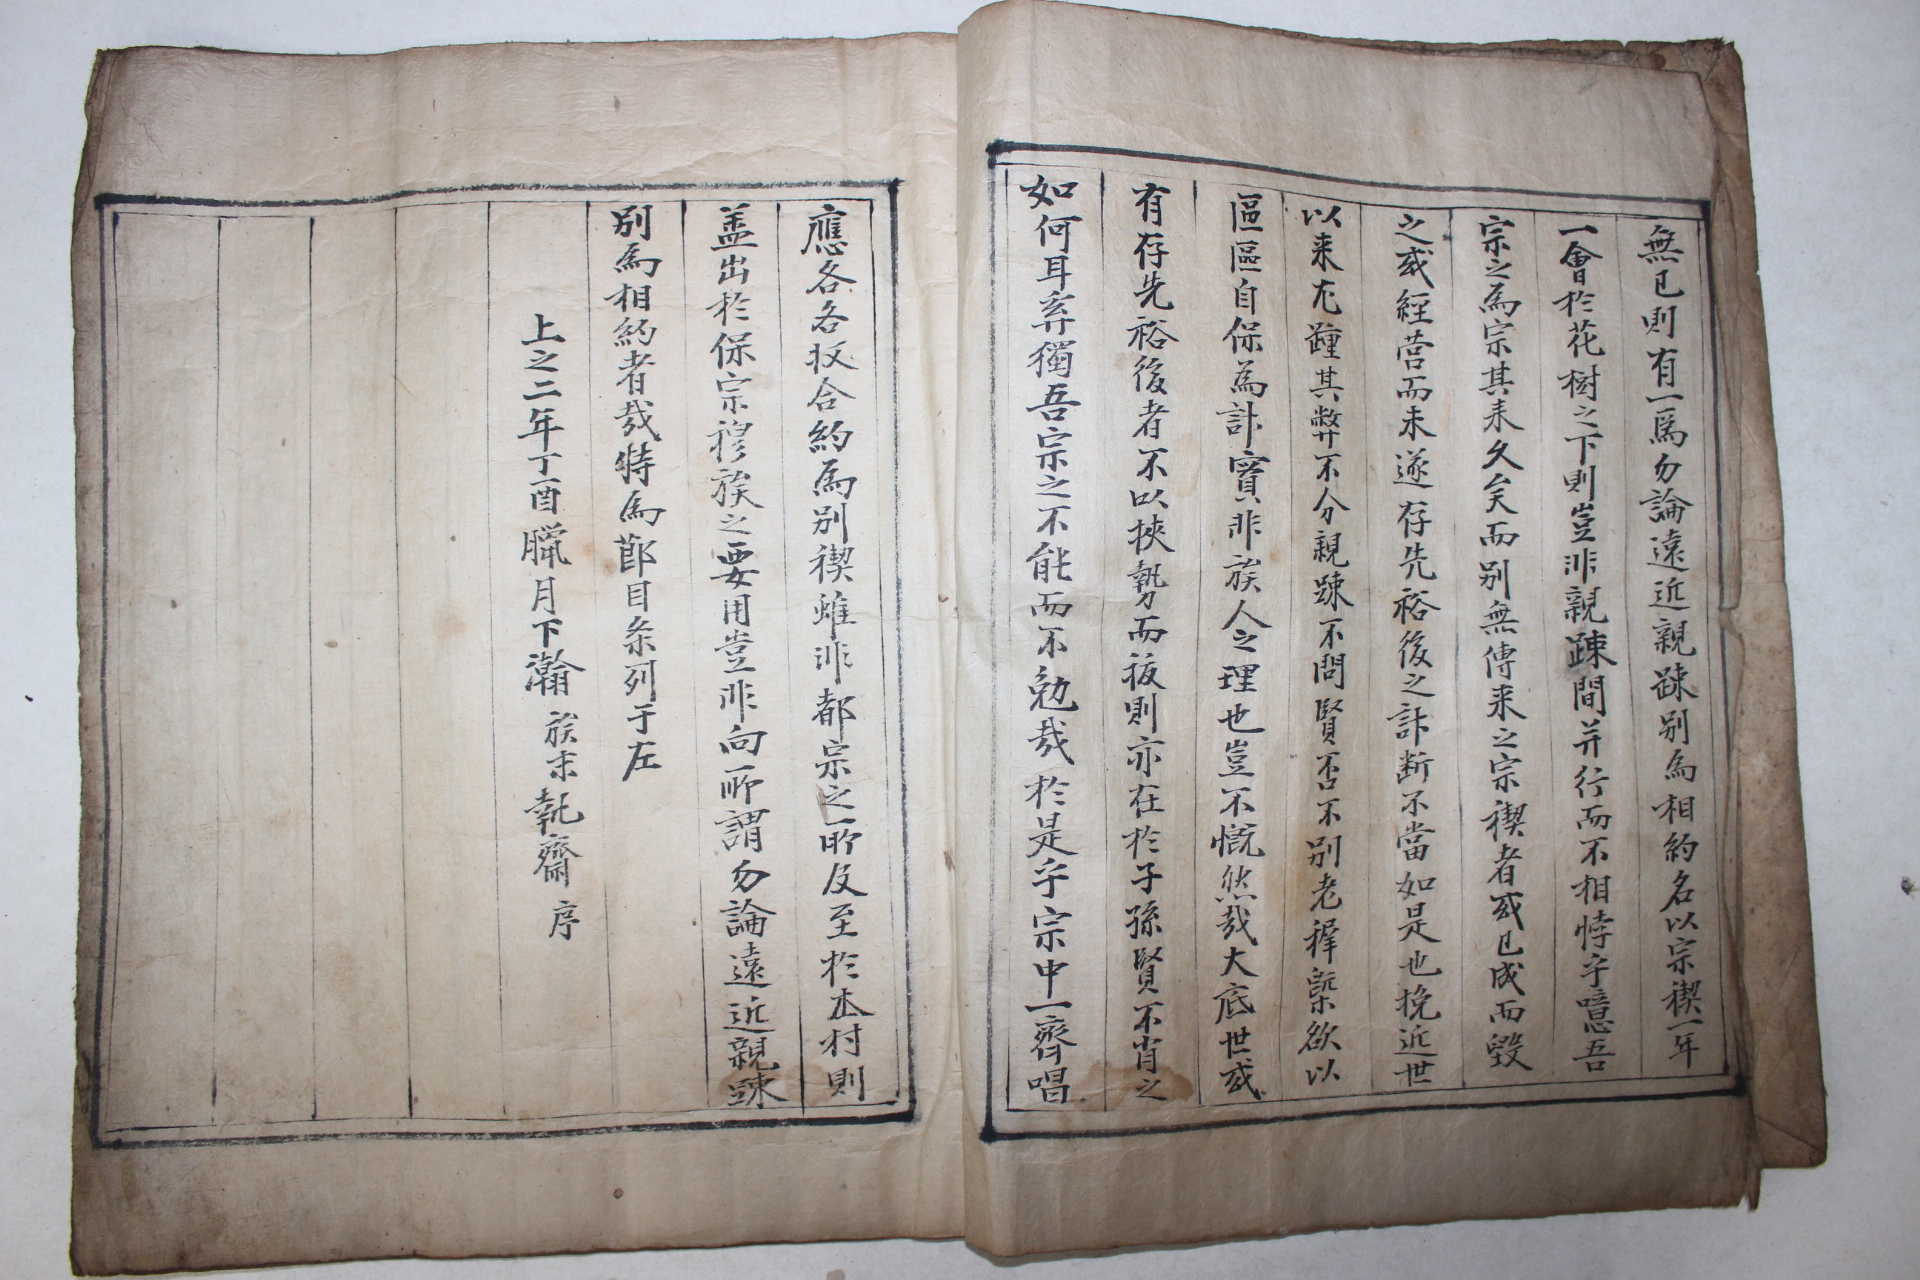 無已則有一焉勿論遠近親踈別爲相約名以宗禊一年
一會於花樹之下則豈非親踈間幷行而不相悖乎噫吾
宗之爲宗其来久矣而別無傳来之宗禊者或已成而毀
之或經营而未遂存先裕後之計断不當如是也挽近世
以来尤踵其弊不分親踈不問賢否不別老穉槩欲以
區區自保爲計實非族人之理也豈不慨然哉大底世或
有存先裕後者不以挾勢而拔則亦在於子孫賢不肖之
如何耳奔獨吾宗之不能而不勉哉於是乎宗中一齊唱
應各各收合約爲別禊雖非都宗之所及至於本村則
盖出於保宗穆族之要用豈非向所謂勿論遠近親踈
別爲相約者哉特爲節目条列于左
上之二年丁酉臘月下瀚族末執齋序